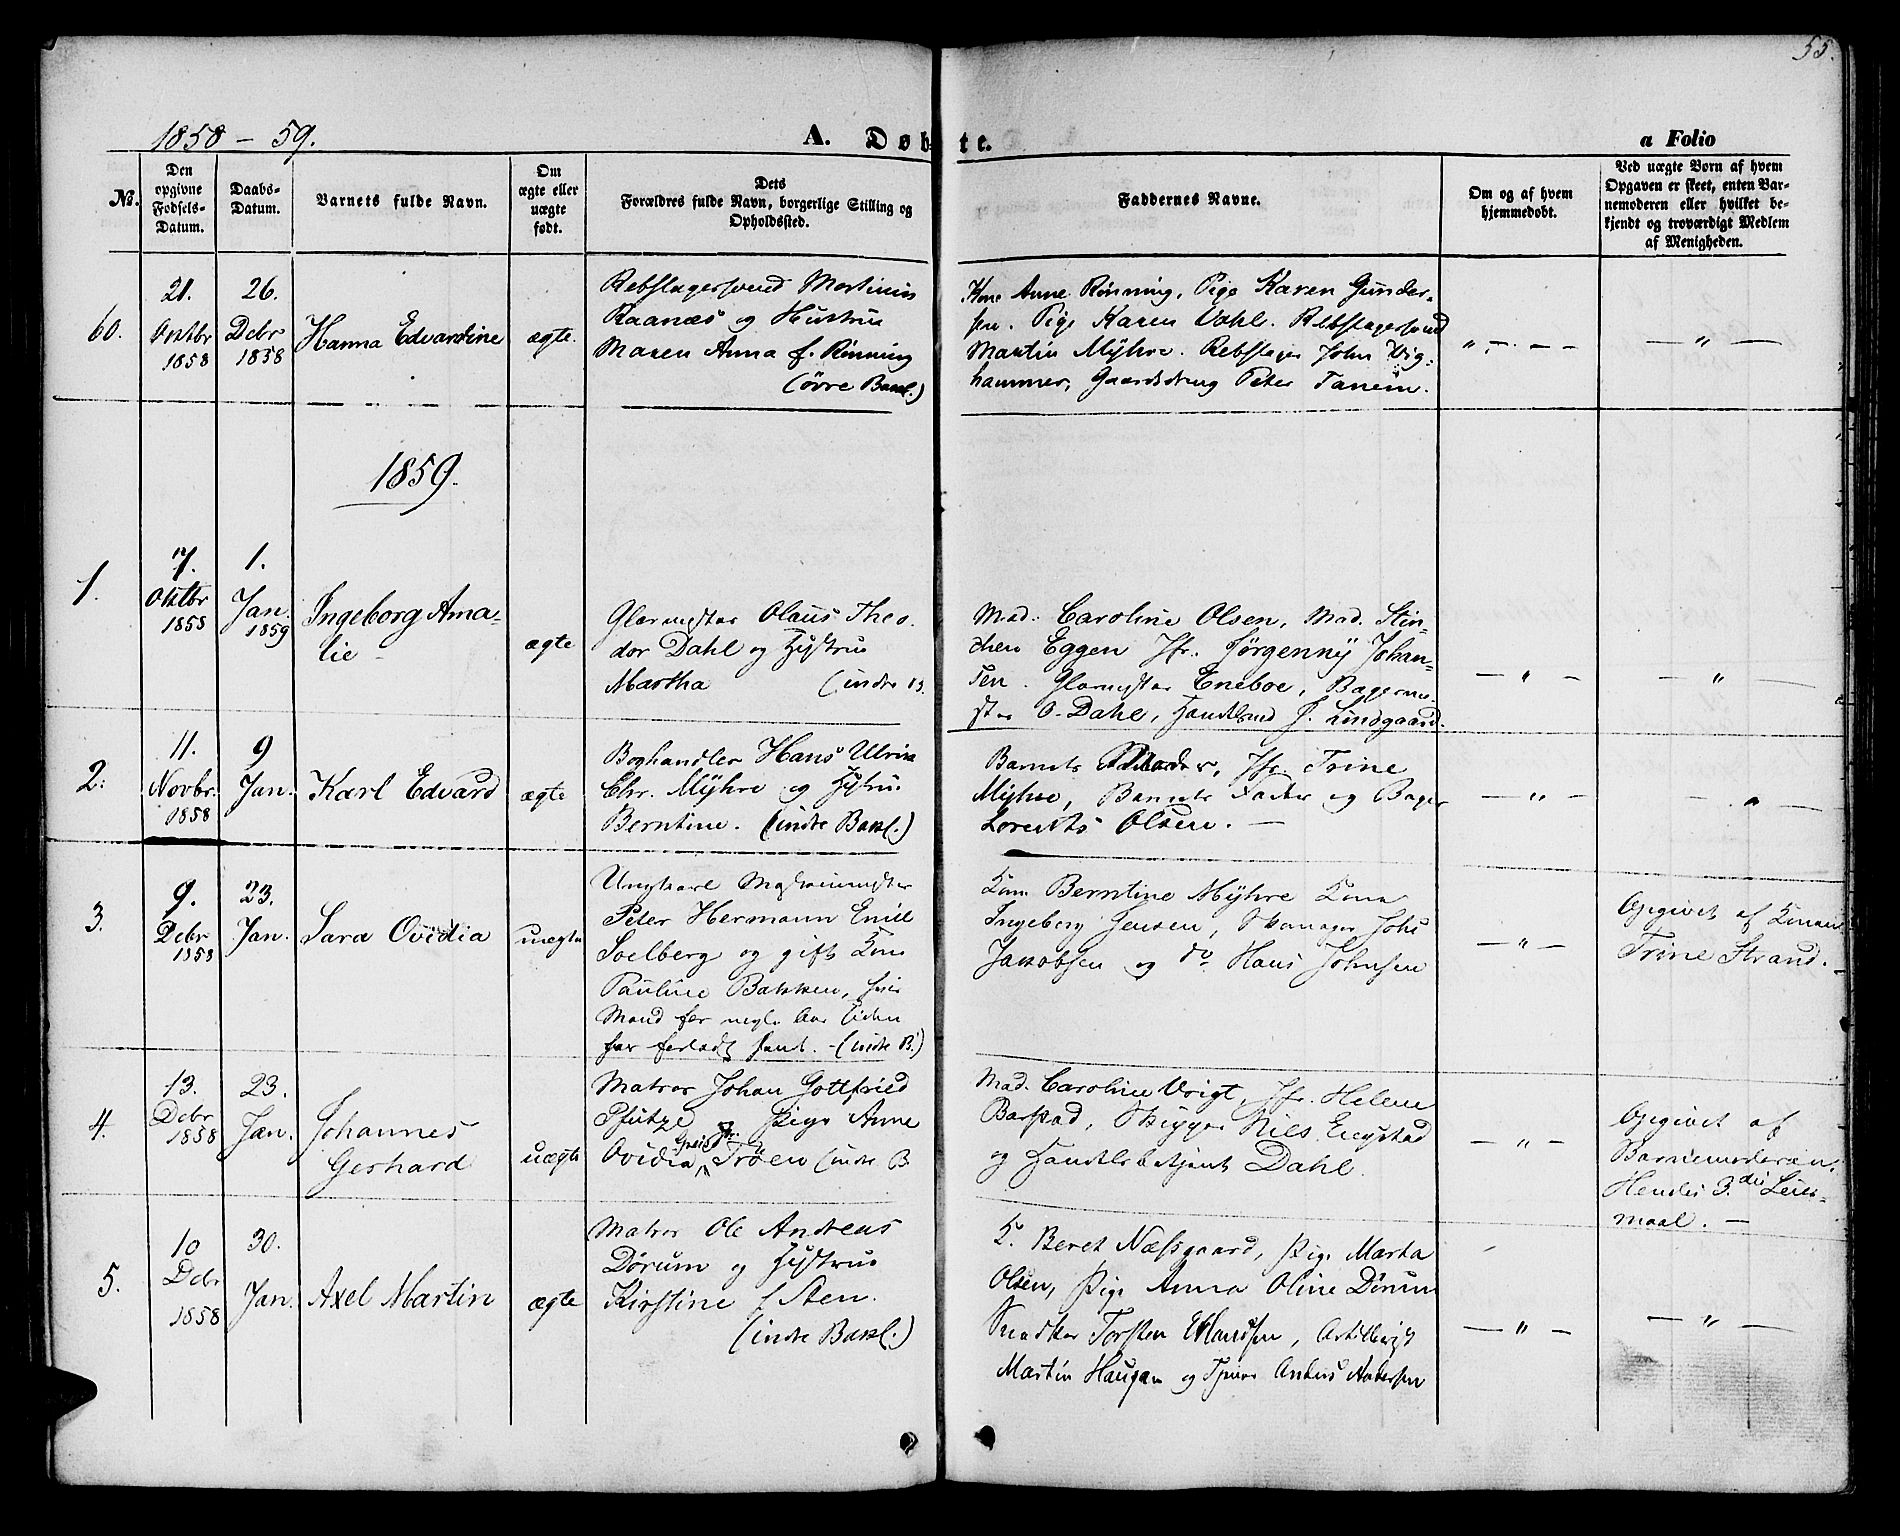 55.
1858 – 59.
A. Døbte.
a Folio
No.
Den opgivne Fødsels-Datum.
Daabs-Datum.
Barnets fulde Navn.
Om ægte eller uægte født.
Dets Forældres fulde Navn, borgerlige Stilling og Opholdssted.
Faddernes Navne.
Om og af hvem hjemmedøbt.
Ved uægte Børn af hvem Opgaven er skeet, enten Barnemoderen eller hvilket bekjendt og troværdigt Medlem af Menigheden.
60.
21. Octbr 1858
26. Debr 1858
Hanna Edvardine
ægte.
Rebslagersvend Martinus
Raanæs og Hustrue
Maren Anna f. Rønning
(øvre Bakl.)
Kone Anne Rønning, Pige Karen Gunder-
sen. Pige Karen Dahl. Rebslagersvend
Martin Myhre. Rebslager John Vig-
hammer, Gaardsdreng Peter Tanem.
" – – –
— " —
1859.
1.
7. Oktbr 1858
1. Jan. 1859
Ingeborg Ama-
lie –
ægte
Glarmester Olaus Theo-
dor Dahl og Hustrue
Martha (indre B.
Mad. Caroline Olsen, Mad. Stin-
chen Eggen Jfr. Jørgenny Johan-
sen. Glarmester Eneboe, Bagerme-
ster O. Dahl, Handelsmd J. Lindgaard.
— " —
— " —
2.
11. Novbr. 1858
9 Jan.
Karl Edvard
ægte
Boghandler Hans Ulrik
Chr. Myhre og Hustru
Berntine. (indre Bakl.)
Barnets Moder, Jfr. Trine
Myhre, Barnets Fader og Bager
Lorents Olsen. —
— " —
— " —
3.
9. Debr 1858
23. Jan.
Sara Ovidia
uægte
Ungkarl
Peter Hermann Emil
Soelberg og gift Kone
Pauline Bakken, hvis
Mand for nogle Aar siden
har forladt hende. – (indre B.)
Kone Berntine Myhre Kone
Ingeborg Jensen, Skomager Johs
Jakobsen og do Hans Johnsen
— " —
Opgivet af Konen
Trine Strand. –
4.
13. Debr 1858
23. Jan.
Johannes
Gerhard
uægte
Matros Johan Gottfried
Pfütze og Pige Anne
Ovidia Trøen (indre B
Mad. Caroline Voigt, Jfr. Helene
Barstad, Skipper Niels Engstad
og Handelsbetjent Dahl.
— " —
Opgivet af
Barnemoderen.
Hendes 3.die Leier-
maal. —
5.
10 Debr 1858
30. Jan.
Axel Martin
ægte
Matros Ole Andreas
Dørum og Hustrue
Kirstine f Sten.
(indre Bakl.)
K. Beret Næssgaard, Pige Marta
Olsen, Pige Anna Oline Dørum
Snedker Torsten Artillerist
Martin Haugan og Anders Andersen
— " —
— " —